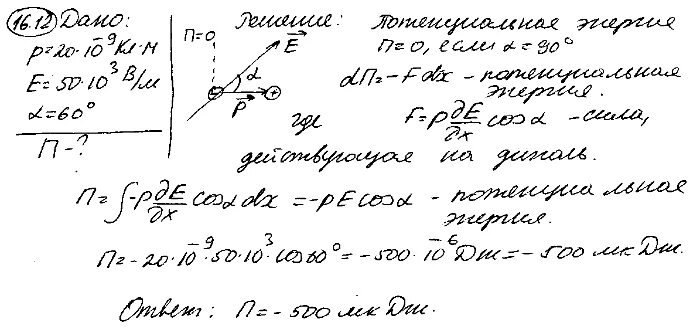 16.12 Дано:
p=20·10⁻⁹ Кл·м
E=50·10³ В/м
α=60°
П-?
Решение:
П=0
E
α
p
Потенциальная энергия
П=0, если α=90°
dП=-Fdx - потенциальная
энергия.
где F=p ∂E/∂x cosα - сила,
действующая на диполь.
П=∫-p ∂E/∂x cosα dx =-pEcosα - потенциальная
энергия.
П=-20·10⁻⁹·50·10³·cos60°=-500·10⁻⁶Дж=-500 мкДж.
Ответ: П=-500 мкДж.